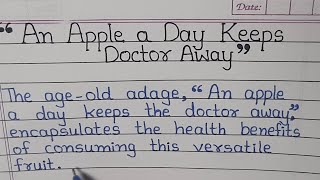 Date:
“ An Apple a Day Keeps
Doctor Away”
The age-old adage, “An apple
a day keeps the doctor away,”
encapsulates the health benefits
of consuming this versatile
fruit.